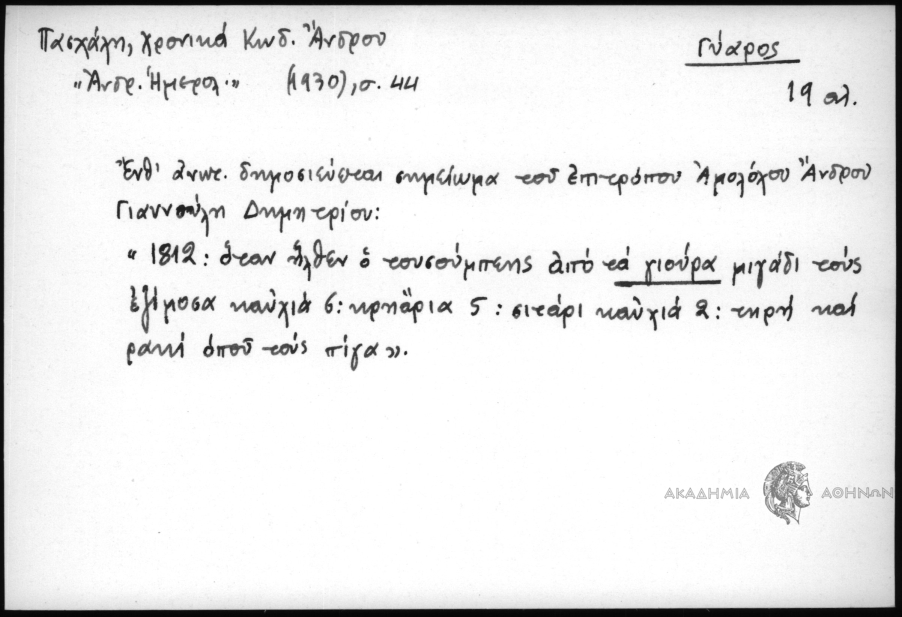 Πασχάλη, χρονικά Κωδ. Ἄνδρου
"Ἀνδρ. Ἡμερολ." (1930), σ. 44
Γύαρος
19 αἰ.
Ἔνθ' ἀνωτ. δημοσιεύεται σημείωμα τοῦ ἐπιτρόπου Ἀμολόχου Ἄνδρου
Γιαννούλη Δημητρίου:
« 1812: ὅταν ἦλθεν ὁ τουσούμπεης ἀπό τά γιούρα μιγάδι τούς
ἐζίμοσα καὐχιά 6: κρηάρια 5: σιτάρι καὐχιά 2: τηρή καί
ρακί ὁποῦ τούς πίγα».
ΑΚΑΔΗΜΙΑ ΑΘΗΝΩΝ